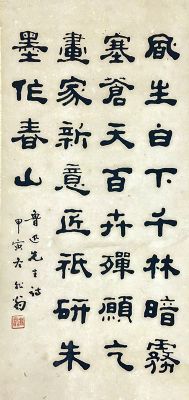 風生白下千林暗霧
塞蒼天百卉殫願乞
畫家新意匠祇研朱
墨作春山
魯迅先生詩
甲寅冬翁